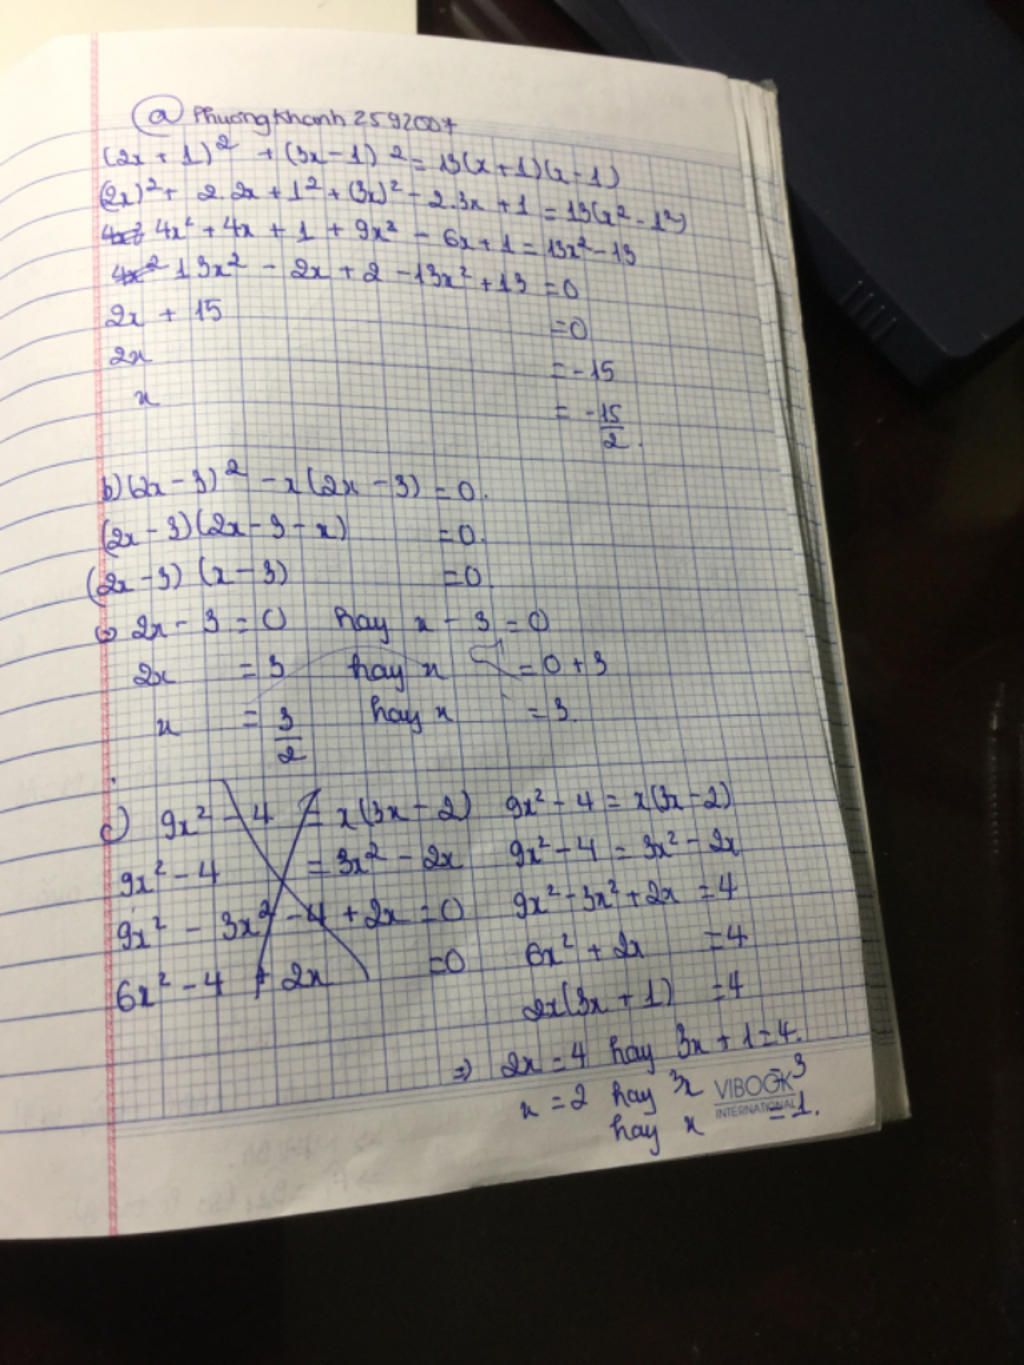 a) Phuongkhanh2592007
(2x + 1)² + (3x - 1)² = 13(x + 1)(x - 1)
(2x)² + 2.2x + 1² + (3x)² - 2.3x + 1 = 13(x² - 1²)
4x² + 4x + 1 + 9x² - 6x + 1 = 13x² - 13
13x² - 2x + 2 - 13x² + 13 = 0
2x + 15 = 0
2x = -15
x = -15/2.
b) (2x - 3)² - x(2x - 3) = 0.
(2x - 3)(2x - 3 - x) = 0.
(2x - 3) (x - 3) = 0.
2x - 3 = 0 hay x - 3 = 0
2x = 3 hay x = 0 + 3
x = 3/2 hay x = 3.
c) 9x² - 4 = x(3x - 2)
9x² - 4 = 3x² - 2x
9x² - 3x² - 4 + 2x = 0
6x² - 4 + 2x = 0
9x² - 4 = x(3x - 2)
9x² - 4 = 3x² - 2x
9x² - 3x² + 2x = 4
6x² + 2x = 4
2x(3x + 1) = 4
⇒ 2x = 4 hay 3x + 1 = 4.
x = 2 hay 3x = 3
hay x = 1.
VIBOOK
INTERNATIONAL